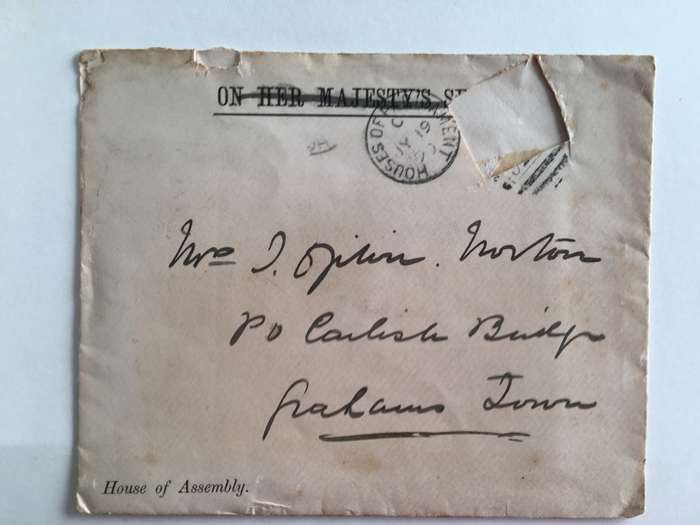 ON HER MAJESTY'S SE
HOUSES OF P MENT
C
JY 19
Mrs J. Ogilvie. Norton
PO Carlisle Bridge
Grahams Town
House of Assembly.